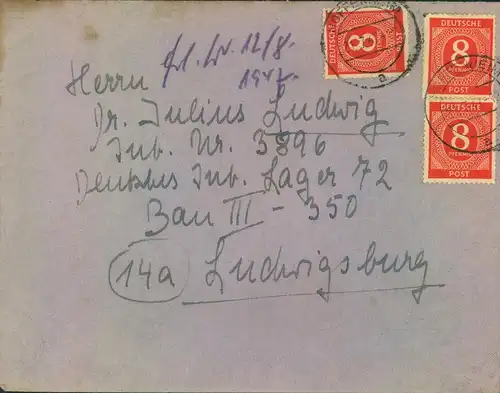 Herrn
Dr. Julius Ludwig
Int. Nr. 3896
Deutsches Int. Lager 72
Bau III - 350
14a Ludwigsburg
12/8.
1947.
DEUTSCHE
8
PFENNIG
POST
DEUTSCHE
8
PFENNIG
POST
DEUTSCHE
8
PFENNIG
POST
a